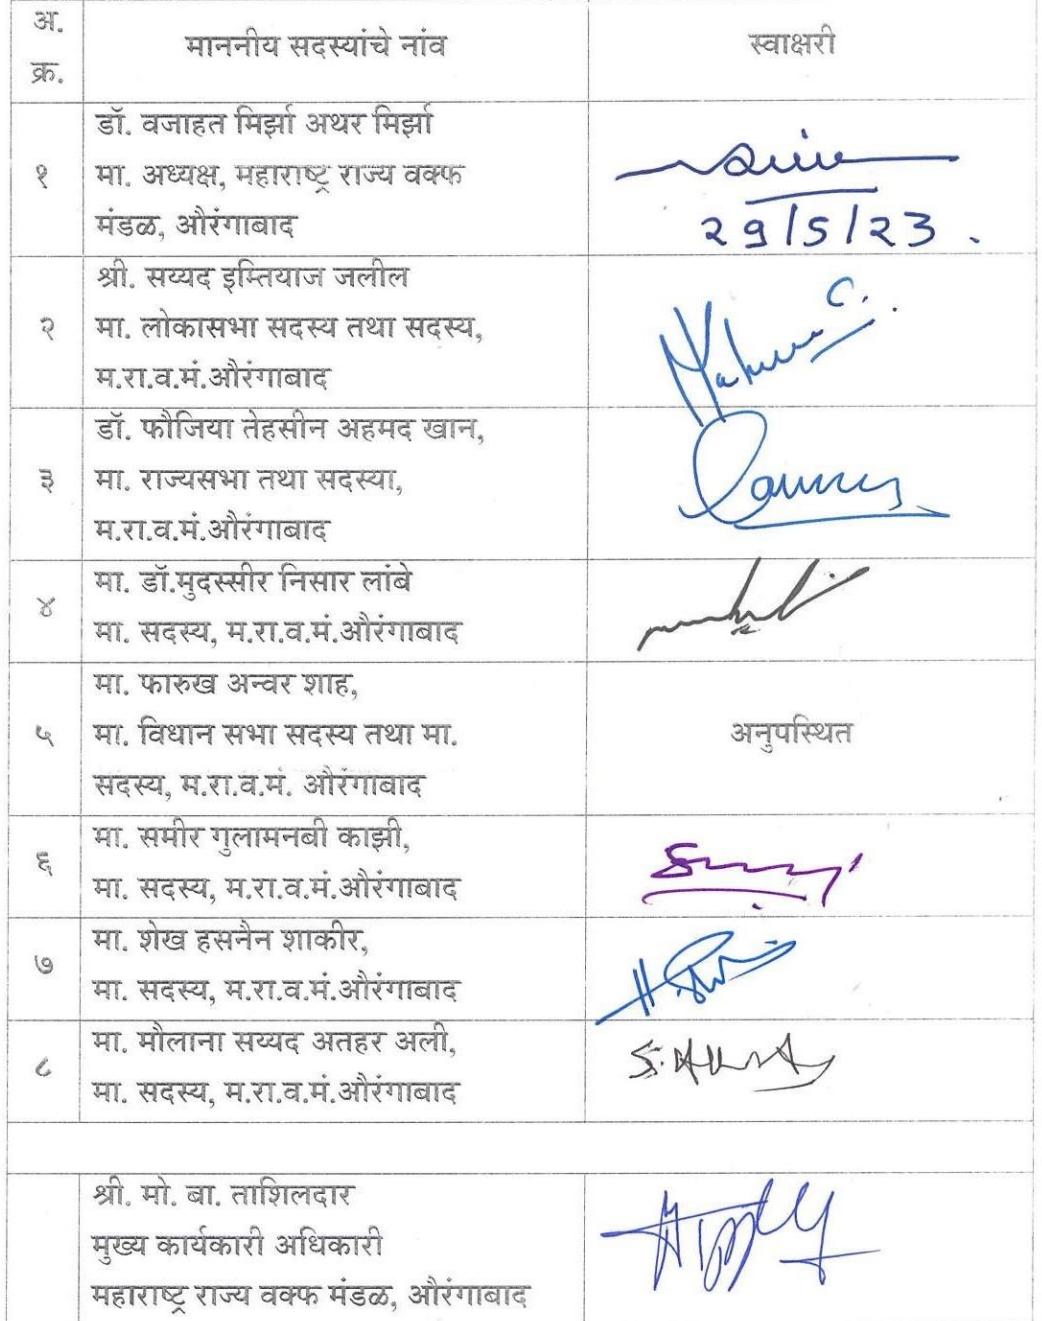 अ.
क्र.
माननीय सदस्यांचे नांव
स्वाक्षरी
१
डॉ. वजाहत मिर्झा अथर मिर्झा
मा. अध्यक्ष, महाराष्ट्र राज्य वक्फ
मंडळ, औरंगाबाद
29/5/23.
२
श्री. सय्यद इम्तियाज जलील
मा. लोकासभा सदस्य तथा सदस्य,
म.रा.व.मं.औरंगाबाद
३
डॉ. फौजिया तेहसीन अहमद खान,
मा. राज्यसभा तथा सदस्या,
म.रा.व.मं.औरंगाबाद
४
मा. डॉ.मुदस्सीर निसार लांबे
मा. सदस्य, म.रा.व.मं.औरंगाबाद
५
मा. फारुख अन्वर शाह,
मा. विधान सभा सदस्य तथा मा.
सदस्य, म.रा.व.मं. औरंगाबाद
अनुपस्थित
६
मा. समीर गुलामनबी काझी,
मा. सदस्य, म.रा.व.मं.औरंगाबाद
७
मा. शेख हसनैन शाकीर,
मा. सदस्य, म.रा.व.मं.औरंगाबाद
८
मा. मौलाना सय्यद अतहर अली,
मा. सदस्य, म.रा.व.मं.औरंगाबाद
श्री. मो. बा. ताशिलदार
मुख्य कार्यकारी अधिकारी
महाराष्ट्र राज्य वक्फ मंडळ, औरंगाबाद